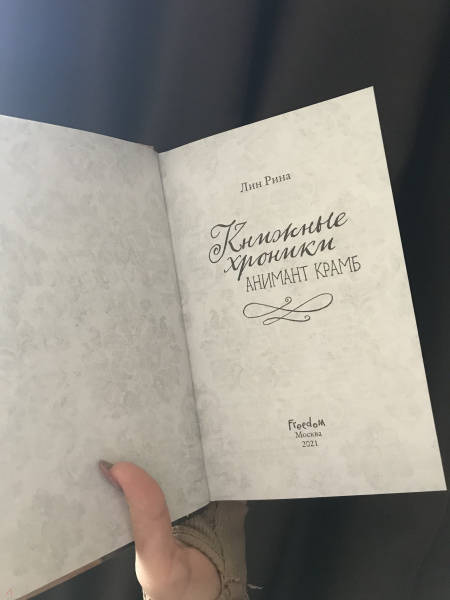 Лин Рина
Книжные
хроники
АНИМАНТ КРАМБ
Freedom
Москва
2021